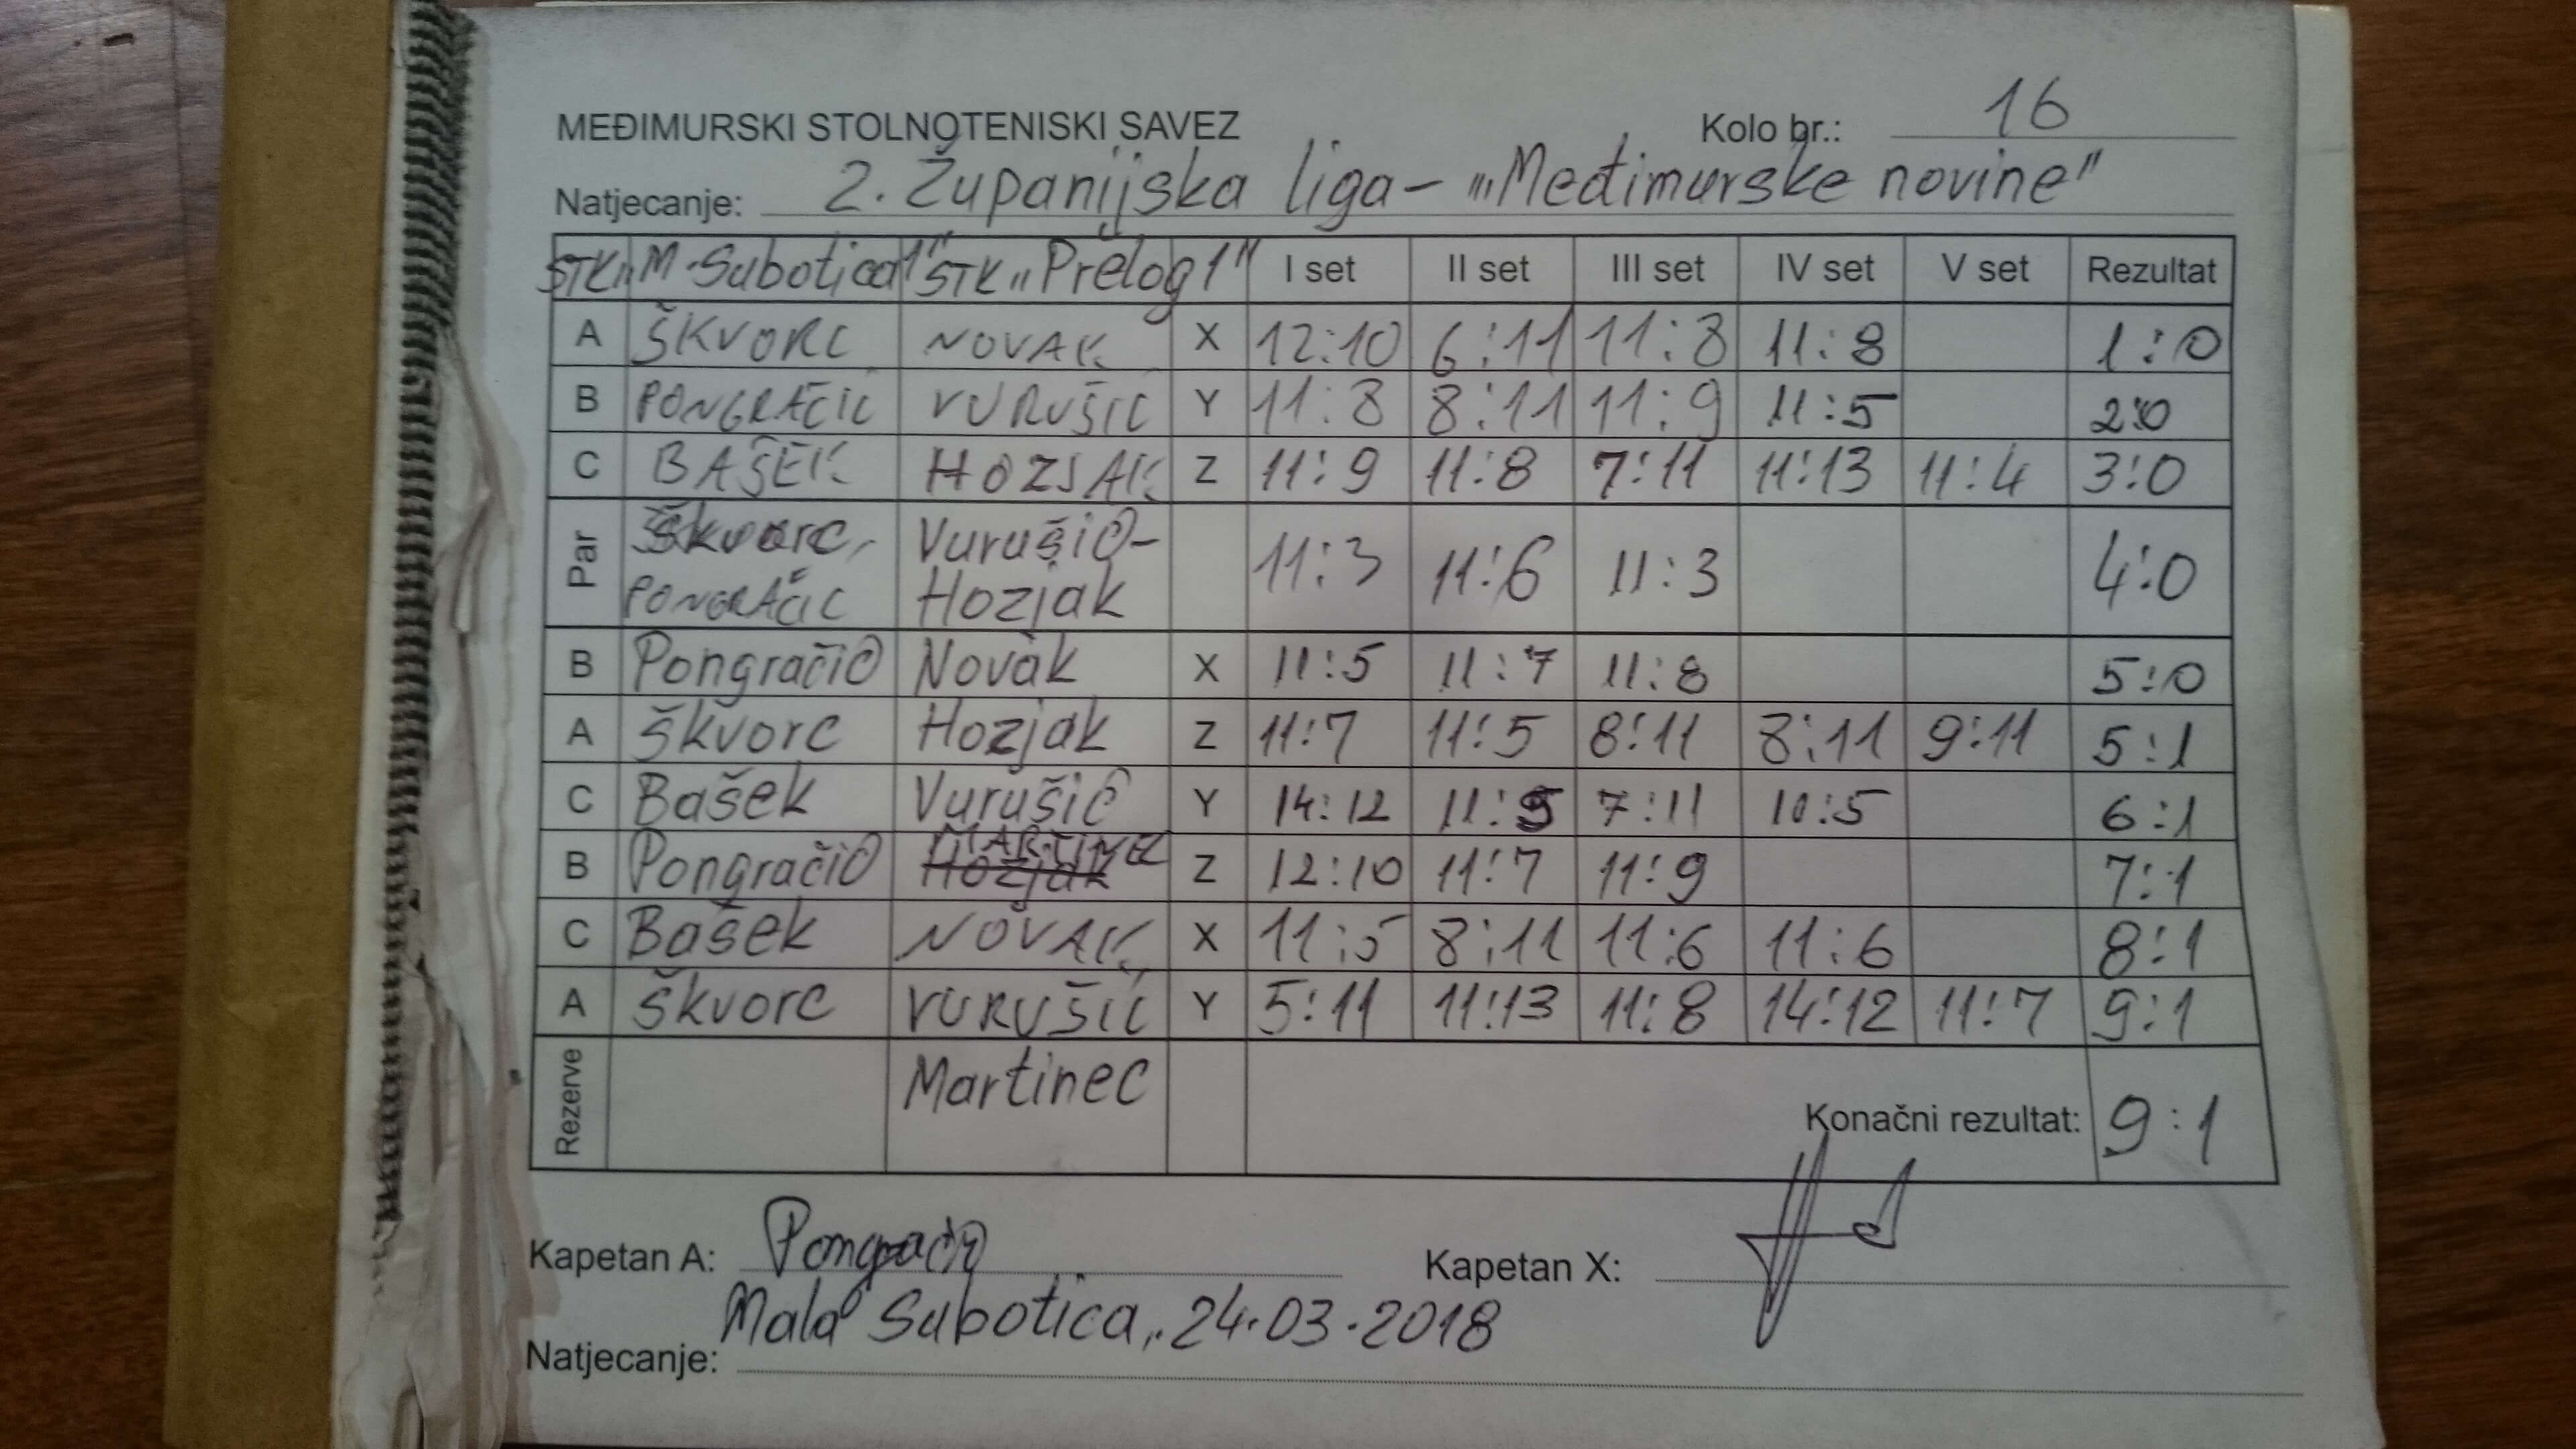 MEĐIMURSKI STOLNOTENISKI SAVEZ Kolo br.: 16
Natjecanje: 2. Županijska liga - „Međimurske novine"
STK „M. Subotica 1" STK „Prelog 1" I set II set III set IV set V set Rezultat
A ŠKVORC NOVAK X 12:10 6:11 11:8 11:8 1:0
B PONGRAČIĆ VURUŠIĆ Y 11:8 8:11 11:9 11:5 2:0
C BAŠEK HOZJAK Z 11:9 11:8 7:11 11:13 11:4 3:0
Par Škvorc, Vurušić-
PONGRAČIĆ Hozjak 11:3 11:6 11:3 4:0
B Pongračić Novak X 11:5 11:7 11:8 5:0
A Škvorc Hozjak Z 11:7 11:5 8:11 8:11 9:11 5:1
C Bašek Vurušić Y 14:12 11:9 7:11 10:5 6:1
B Pongračić MARTINEC Z 12:10 11:7 11:9 7:1
C Bašek NOVAK X 11:5 8:11 11:6 11:6 8:1
A Škvorc VURUŠIĆ Y 5:11 11:13 11:8 14:12 11:7 9:1
Rezerve Martinec
Konačni rezultat: 9:1
Kapetan A: Pongračić Kapetan X:
Mala Subotica, 24.03.2018
Natjecanje: